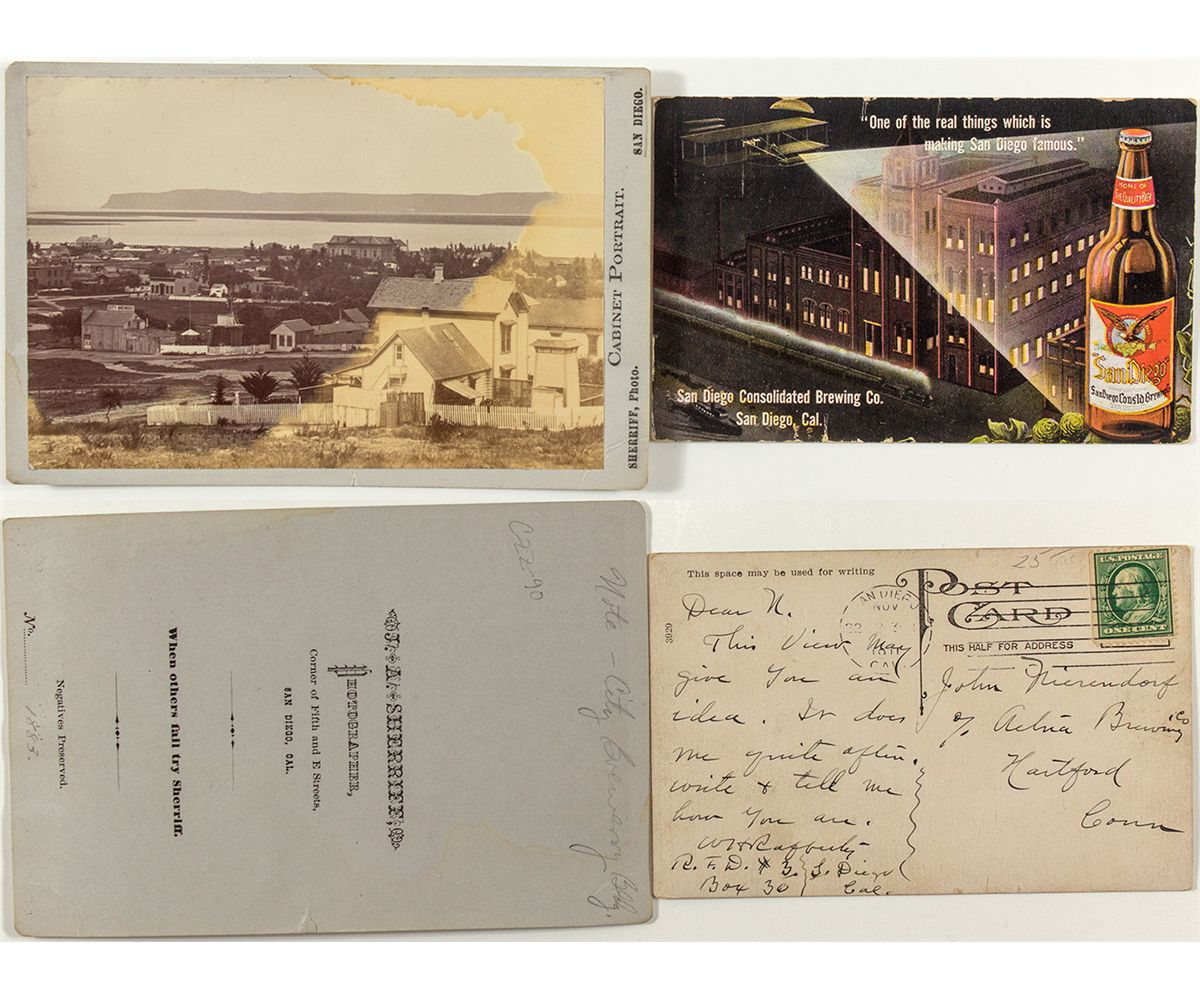 CABINET PORTRAIT.
SAN DIEGO.
SHERRIFF, Photo.
"One of the real things which is
making San Diego famous."
HOME OF
THE QUALITY BEER
"San Diego"
San Diego Cons'ld Brewing
SAN DIEGO
San Diego Consolidated Brewing Co.
San Diego, Cal.
C22-90
Note - City Brewery Bldg.
J. A. SHERRIFF,
PHOTOGRAPHER,
Corner of Fifth and E Streets,
SAN DIEGO, CAL.
When others fail try Sherriff.
Negatives Preserved.
No. 1883.
This space may be used for writing
25
POST
CARD
THIS HALF FOR ADDRESS
U.S. POSTAGE
ONE CENT
SAN DIEGO
NOV
CAL
3929
Dear N.
This View May
give You an
idea. It does
me quite often.
write & tell me
how You are.
R. F. D. # 3. S. Diego
Box 30 Cal.
John Nierendorf
c/o Aetna Brewing Co
Hartford
Conn